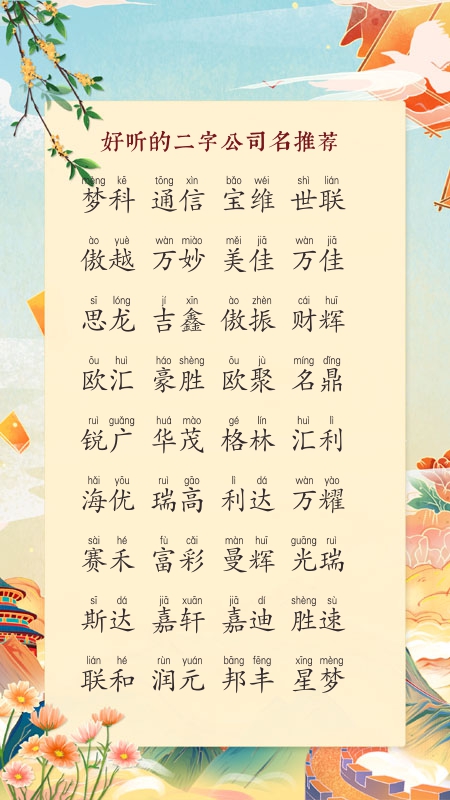 好听的二字公司名推荐
mèng kē tōng xìn bǎo wéi shì lián
梦科 通信 宝维 世联
ào yuè wàn miào měi jiā wàn jiā
傲越 万妙 美佳 万佳
sī lóng jí xīn ào zhèn cái huī
思龙 吉鑫 傲振 财辉
ōu huì háo shèng ōu jù míng dǐng
欧汇 豪胜 欧聚 名鼎
ruì guǎng huá mào gé lín huì lì
锐广 华茂 格林 汇利
hǎi yōu ruì gāo lì dá wàn yào
海优 瑞高 利达 万耀
sài hé fù cǎi màn huī guāng ruì
赛禾 富彩 曼辉 光瑞
sī dá jiā xuān jiā dí shèng sù
斯达 嘉轩 嘉迪 胜速
lián hé rùn yuán bāng fēng xīng mèng
联和 润元 邦丰 星梦